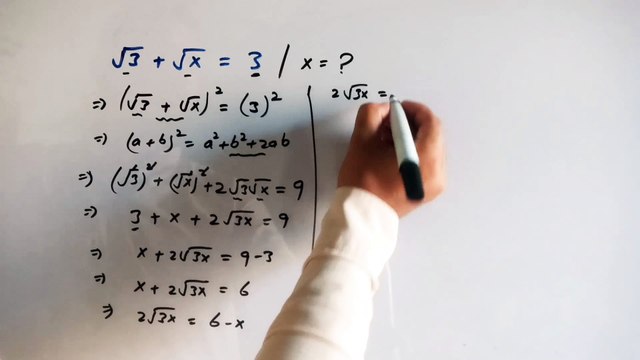 √3 + √x = 3 / x = ?
=> (√3 + √x)² = (3)²
=> (a+b)² = a²+b²+2ab
=> (√3)² + (√x)² + 2√3√x = 9
=> 3 + x + 2√3x = 9
=> x + 2√3x = 9-3
=> x + 2√3x = 6
=> 2√3x = 6-x
2√3x =